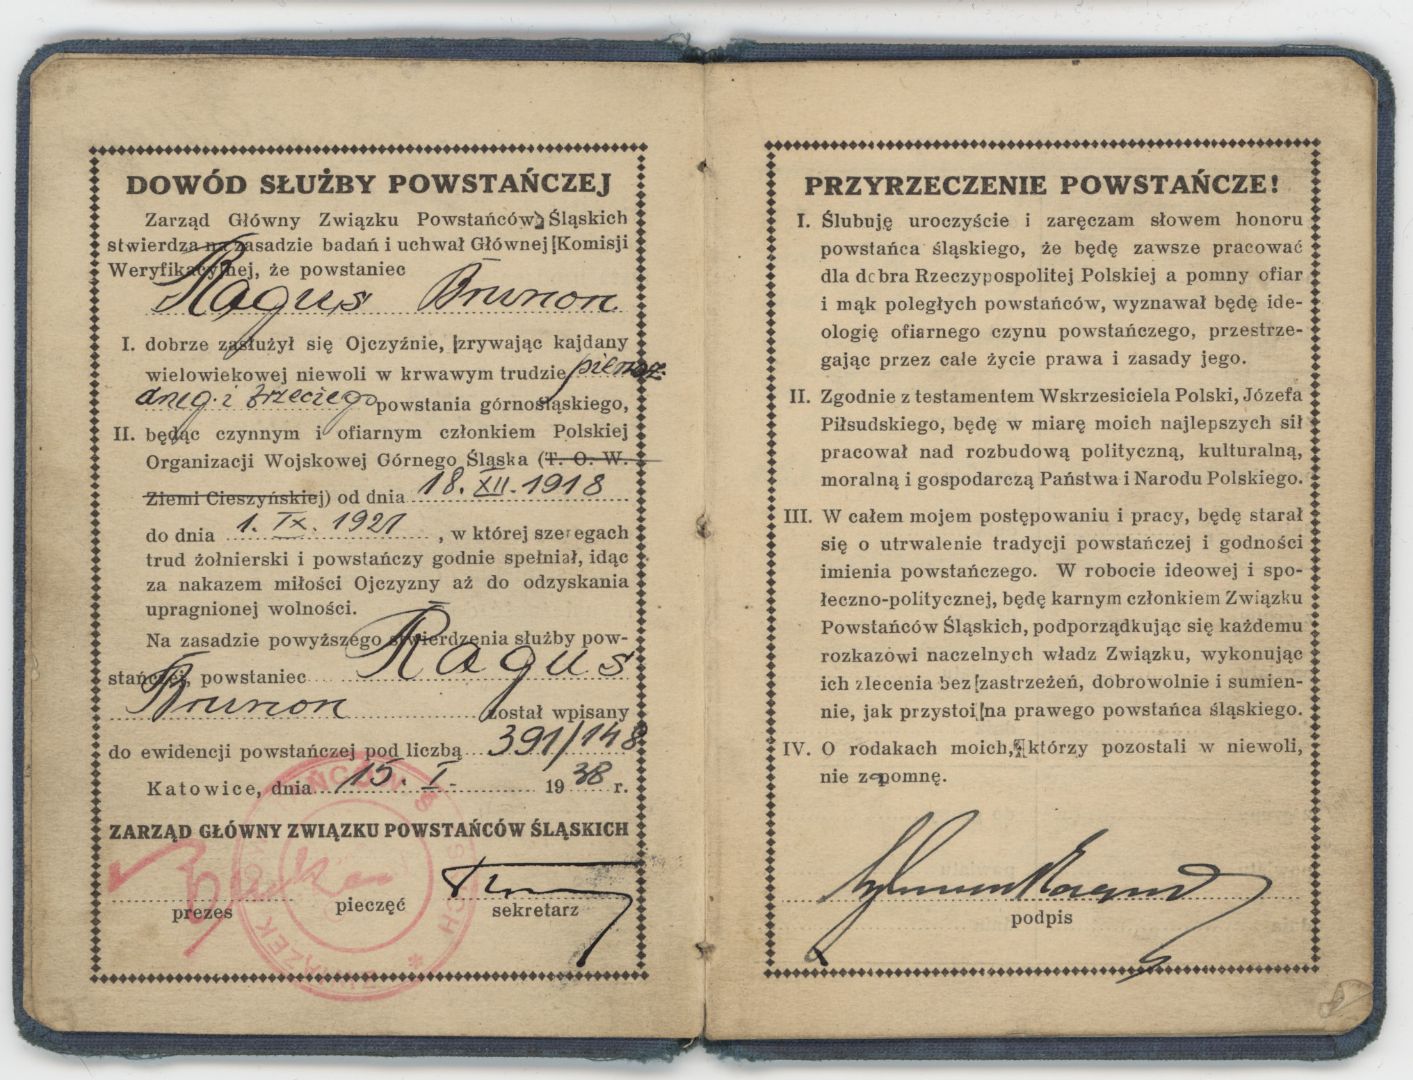 DOWÓD SŁUŻBY POWSTAŃCZEJ
Zarząd Główny Związku Powstańców Śląskich
stwierdza na zasadzie badań i uchwał Głównej Komisji
Weryfikacyjnej, że powstaniec
Ragus Brunon
I. dobrze zasłużył się Ojczyźnie, zrywając kajdany
wielowiekowej niewoli w krwawym trudzie pierwsz.
drug. i trzeciego powstania górnośląskiego,
II. będąc czynnym i ofiarnym członkiem Polskiej
Organizacji Wojskowej Górnego Śląska (T. O. W.
Ziemi Cieszyńskiej) od dnia 18. XII. 1918
do dnia 1. IX. 1921, w której szeregach
trud żołnierski i powstańczy godnie spełniał, idąc
za nakazem miłości Ojczyzny aż do odzyskania
upragnionej wolności.
Na zasadzie powyższego stwierdzenia służby pow-
stańczej, powstaniec Ragus
Brunon został wpisany
do ewidencji powstańczej pod liczbą 391/148
Katowice, dnia 15. I. 1938 r.
ZARZĄD GŁÓWNY ZWIĄZKU POWSTAŃCÓW ŚLĄSKICH
prezes pieczęć sekretarz
PRZYRZECZENIE POWSTAŃCZE!
I. Ślubuję uroczyście i zaręczam słowem honoru
powstańca śląskiego, że będę zawsze pracować
dla dobra Rzeczypospolitej Polskiej a pomny ofiar
i mąk poległych powstańców, wyznawał będę ide-
ologię ofiarnego czynu powstańczego, przestrze-
gając przez całe życie prawa i zasady jego.
II. Zgodnie z testamentem Wskrzesiciela Polski, Józefa
Piłsudskiego, będę w miarę moich najlepszych sił
pracował nad rozbudową polityczną, kulturalną,
moralną i gospodarczą Państwa i Narodu Polskiego.
III. W całem mojem postępowaniu i pracy, będę starał
się o utrwalenie tradycji powstańczej i godności
imienia powstańczego. W robocie ideowej i spo-
łeczno-politycznej, będę karnym członkiem Związku
Powstańców Śląskich, podporządkując się każdemu
rozkazowi naczelnych władz Związku, wykonując
ich zlecenia bez zastrzeżeń, dobrowolnie i sumien-
nie, jak przystoi na prawego powstańca śląskiego.
IV. O rodakach moich, którzy pozostali w niewoli,
nie zapomnę.
podpis